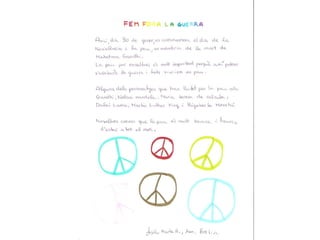 FEM FORA LA GUERRA
Avui, dia 30 de gener, commemorem el dia de la
No violència i la pau, en memòria de la mort de
Mahatma Gandhi.
La pau per nosaltres és molt important perquè així podem
la guerra i tots viurem en pau.
Alguns dels personatges que han lluitat per la pau són
Gandhi, Nelson Mandela, Maria Teresa de Calcuta,
Dalai Lama, Martin Luther King i Rigoberta Menchú
Nosaltres creiem que la pau és molt bonica i hauria
d'estar a tot el món.